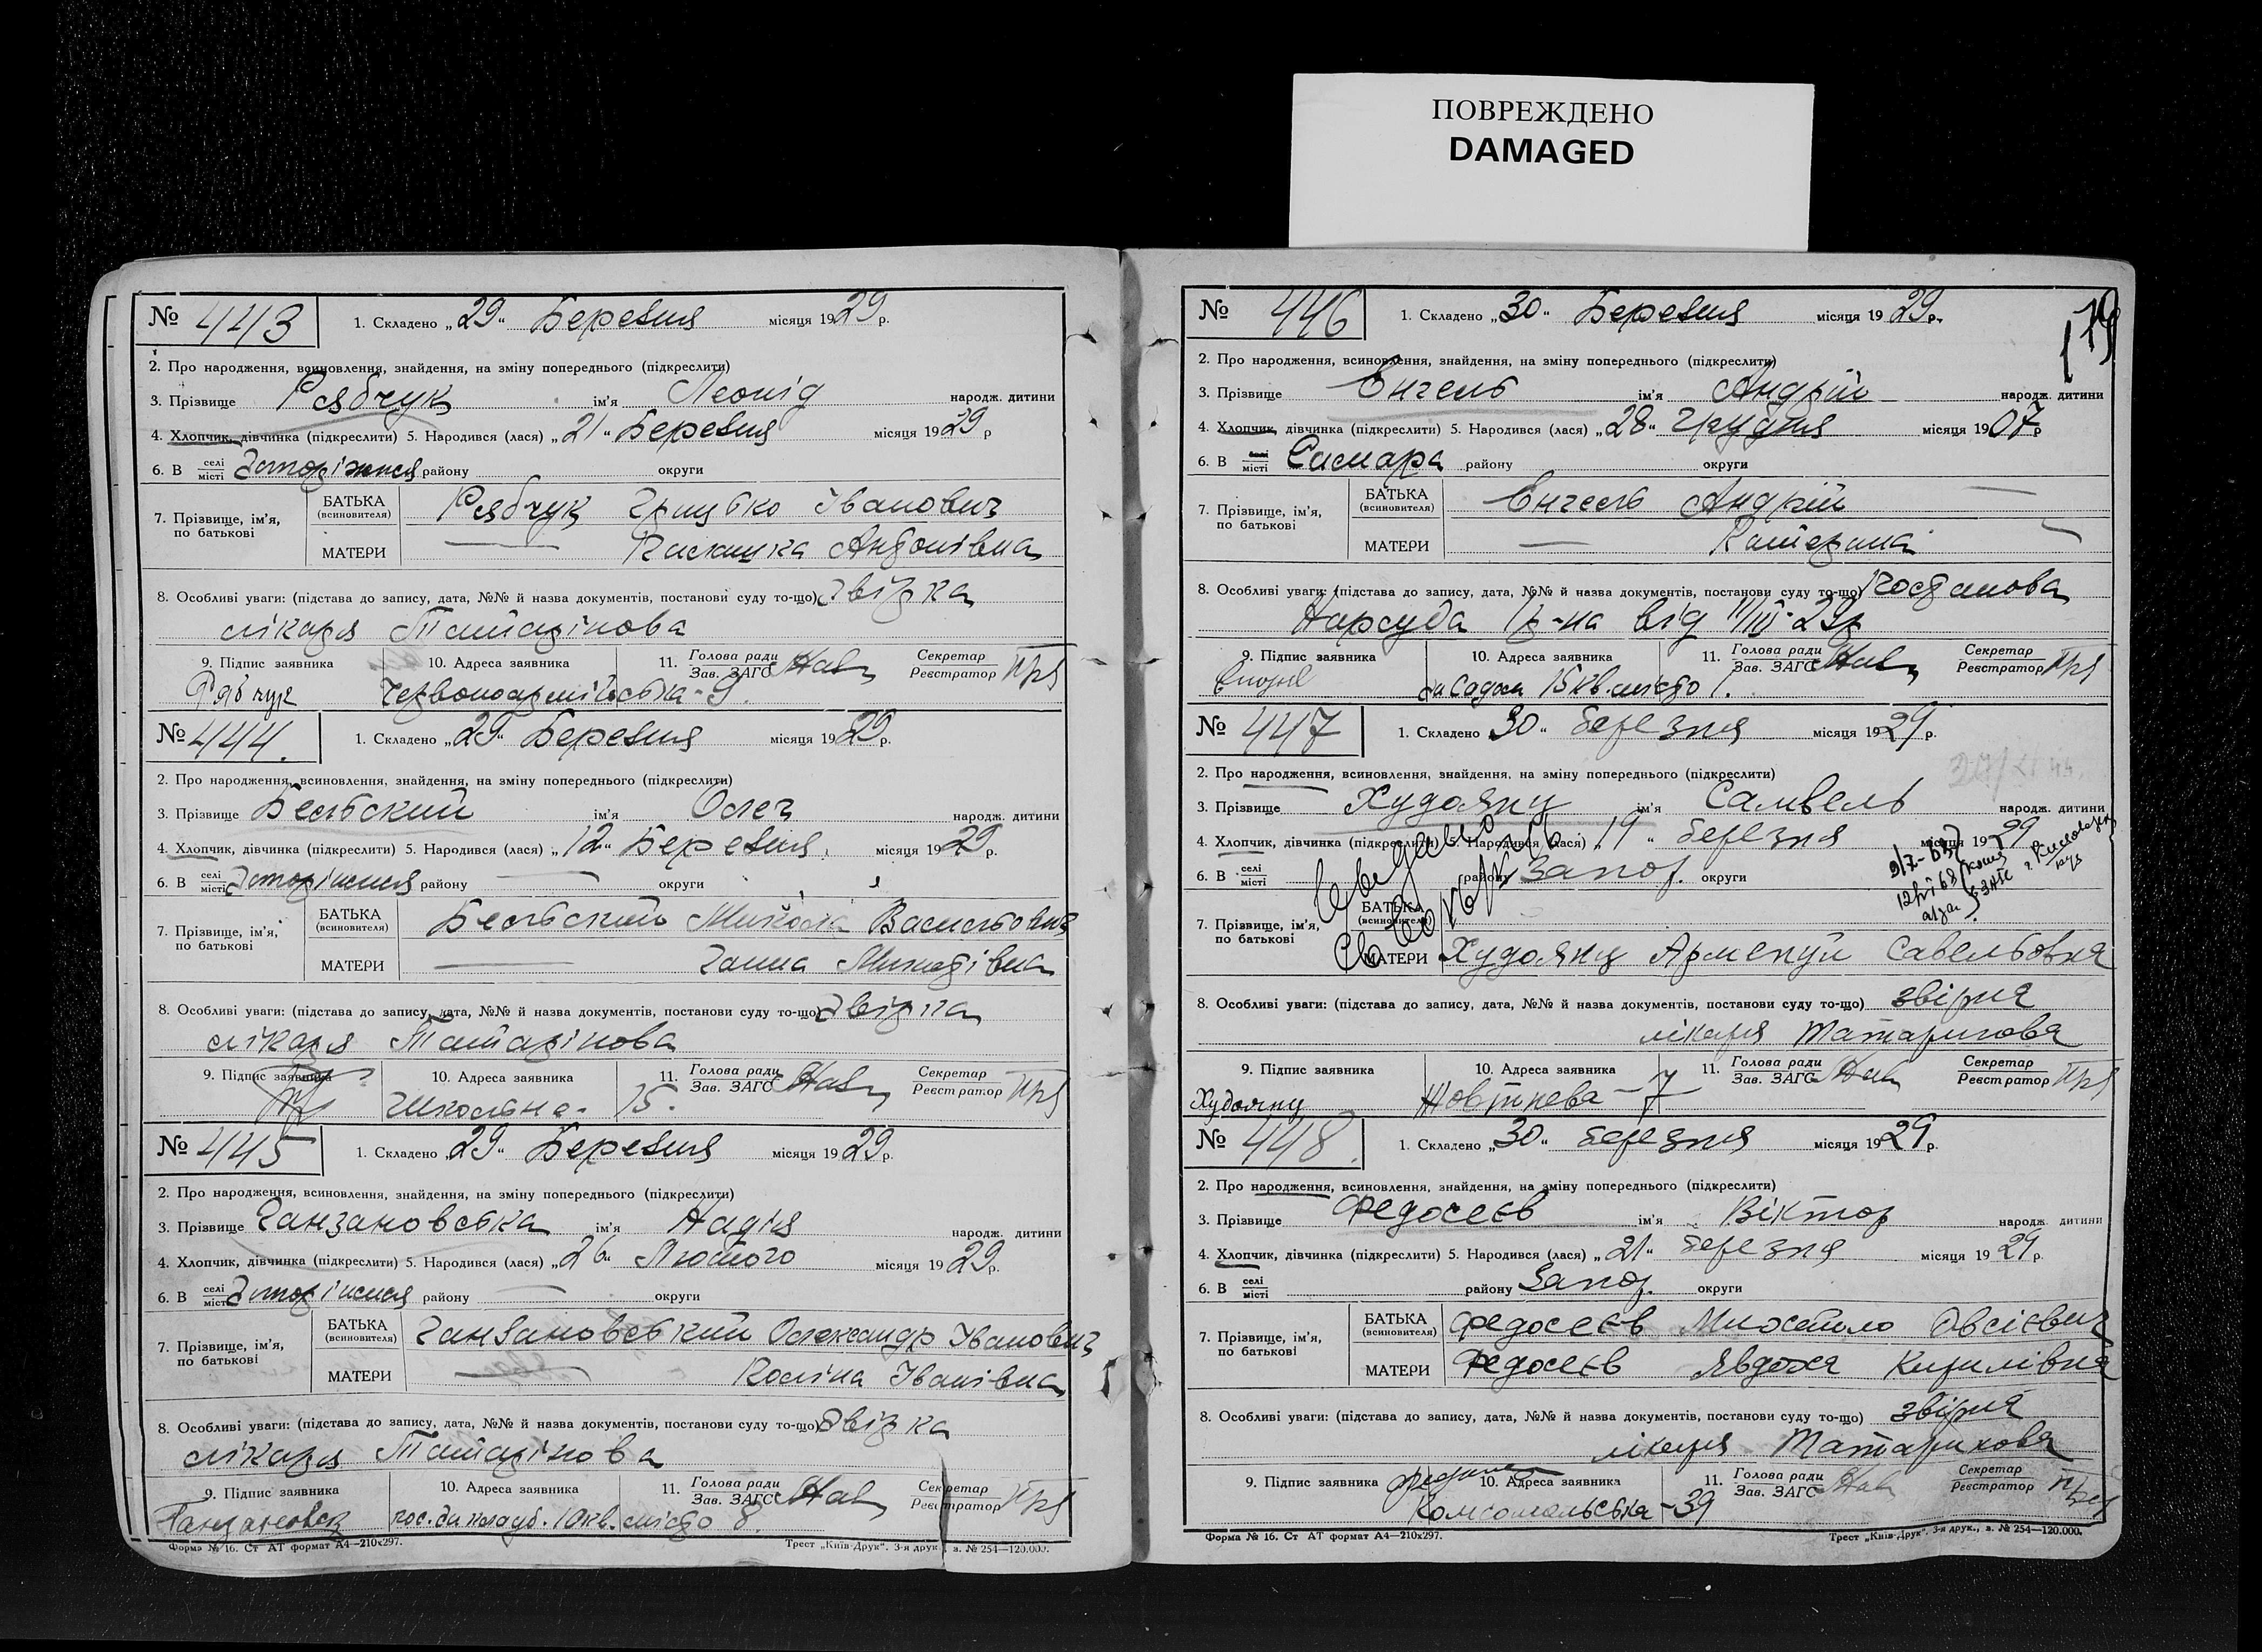 ПОВРЕЖДЕНО
DAMAGED
№ 443
1. Складено „29" Березня місяця 1929 р.
2. Про народження, всиновлення, знайдення, на зміну попереднього (підкреслити)
3. Прізвище Рябчук ім'я Леонід народж. дитини
4. Хлопчик, дівчинка (підкреслити) 5. Народився (лася) „21" Березня місяця 1929 р
6. В селі місті Запоріжжя району округи
7. Прізвище, ім'я, по батькові
БАТЬКА (всиновителя) Рябчук Грицько Іванович
МАТЕРИ — Антонівна
8. Особливі уваги: (підстава до запису, дата, №№ й назва документів, постанови суду то-що) звідка
лікаря Татарінова
9. Підпис заявника 10. Адреса заявника 11. Голова ради Зав. ЗАГС Секретар Реєстратор
Рябчук Червоноармійська - 9.
№ 444.
1. Складено „29" Березня місяця 1929 р.
2. Про народження, всиновлення, знайдення, на зміну попереднього (підкреслити)
3. Прізвище Бельский ім'я Олег народж. дитини
4. Хлопчик, дівчинка (підкреслити) 5. Народився (лася) „12" Березня місяця 1929 р.
6. В селі місті Запоріжжя району — округи
7. Прізвище, ім'я, по батькові
БАТЬКА (всиновителя) Бельский Микола Васильович
МАТЕРИ — Ганна
8. Особливі уваги: (підстава до запису, дата, №№ й назва документів, постанови суду то-що) звідка
лікаря Татарінова
9. Підпис заявника 10. Адреса заявника 11. Голова ради Зав. ЗАГС Секретар Реєстратор
Шкільна - 15.
№ 445
1. Складено „29" Березня місяця 1929 р.
2. Про народження, всиновлення, знайдення, на зміну попереднього (підкреслити)
3. Прізвище Ганзановська ім'я Надія народж. дитини
4. Хлопчик, дівчинка (підкреслити) 5. Народився (лася) „26" Лютого місяця 1929 р.
6. В селі місті Запоріжжя району — округи
7. Прізвище, ім'я, по батькові
БАТЬКА (всиновителя) Ганзановський Олександр Іванович
МАТЕРИ — Іванівна
8. Особливі уваги: (підстава до запису, дата, №№ й назва документів, постанови суду то-що) звідка
лікаря Татарінова
9. Підпис заявника 10. Адреса заявника 11. Голова ради Зав. ЗАГС Секретар Реєстратор
10 кв. місто 8.
Форма № 16. Ст АТ формат А4—210х297. Трест „Київ-Друк". 3-я друк., з. № 254—120.000.
179
№ 446
1. Складено „30" Березня місяця 1929 р.
2. Про народження, всиновлення, знайдення, на зміну попереднього (підкреслити)
3. Прізвище Енгель ім'я Андрій народж. дитини
4. Хлопчик, дівчинка (підкреслити) 5. Народився (лася) „28" грудня місяця 1907 р
6. В місті Самара району округи
7. Прізвище, ім'я, по батькові
БАТЬКА (всиновителя) Енгель Андрій —
МАТЕРИ — Катерина —
8. Особливі уваги: (підстава до запису, дата, №№ й назва документів, постанови суду то-що) Постанова
Нарсуда 1 р-на від 11/III-29р
9. Підпис заявника 10. Адреса заявника 11. Голова ради Зав. ЗАГС Секретар Реєстратор
15 кв. місто 1.
№ 447
1. Складено „30" березня місяця 1929 р.
2. Про народження, всиновлення, знайдення, на зміну попереднього (підкреслити)
3. Прізвище Худоянц ім'я Самвель народж. дитини
4. Хлопчик, дівчинка (підкреслити) 5. Народився (лася) „19" березня місяця 1929
6. В селі місті району Запор. округи
7. Прізвище, ім'я, по батькові
БАТЬКА (всиновителя)
МАТЕРИ Худоянц Савельовна
8. Особливі уваги: (підстава до запису, дата, №№ й назва документів, постанови суду то-що) звідка
лікаря Татаринова
9. Підпис заявника 10. Адреса заявника 11. Голова ради Зав. ЗАГС Секретар Реєстратор
Худоянц Жовтнева - 7
№ 448.
1. Складено „30" березня місяця 1929 р.
2. Про народження, всиновлення, знайдення, на зміну попереднього (підкреслити)
3. Прізвище Федосеєв ім'я Віктор народж. дитини
4. Хлопчик, дівчинка (підкреслити) 5. Народився (лася) „21" березня місяця 1929 р.
6. В селі місті району Запор. округи
7. Прізвище, ім'я, по батькові
БАТЬКА (всиновителя) Федосеєв Овсієвич
МАТЕРИ Федосеєв Явдоха Кирилівна
8. Особливі уваги: (підстава до запису, дата, №№ й назва документів, постанови суду то-що) звідка
лікаря Татаринова
9. Підпис заявника 10. Адреса заявника 11. Голова ради Зав. ЗАГС Секретар Реєстратор
Комсомольська - 39
Форма № 16. Ст АТ формат А4—210х297. Трест „Київ-Друк". 3-я друк., з. № 254—120.000.